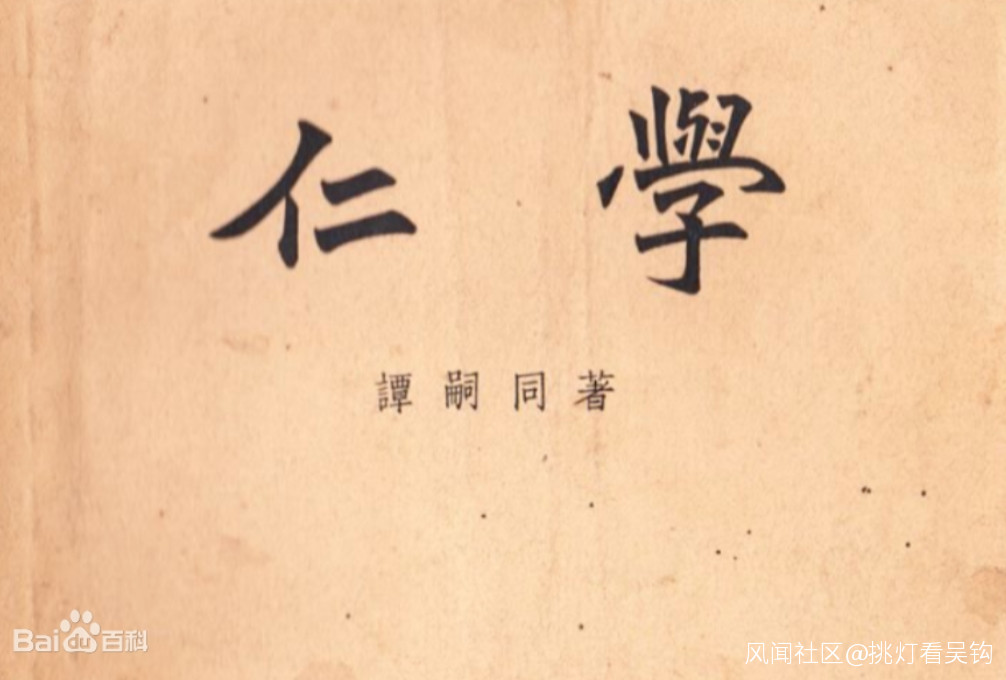 仁學
譚嗣同著
Baidu百科
风闻社区@挑灯看吴钩